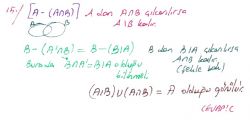 15.) [A - (A∩B)] A dan A∩B çıkarılırsa
A\B kalır.
B - (A'∩B) = B - (B\A) B den B\A çıkarılırsa
A∩B kalır.
Burada B∩A' = B\A olduğu (şekle bak)
bilinmeli
(A\B)∪(A∩B) = A olduğu görülür.
CEVAP: C